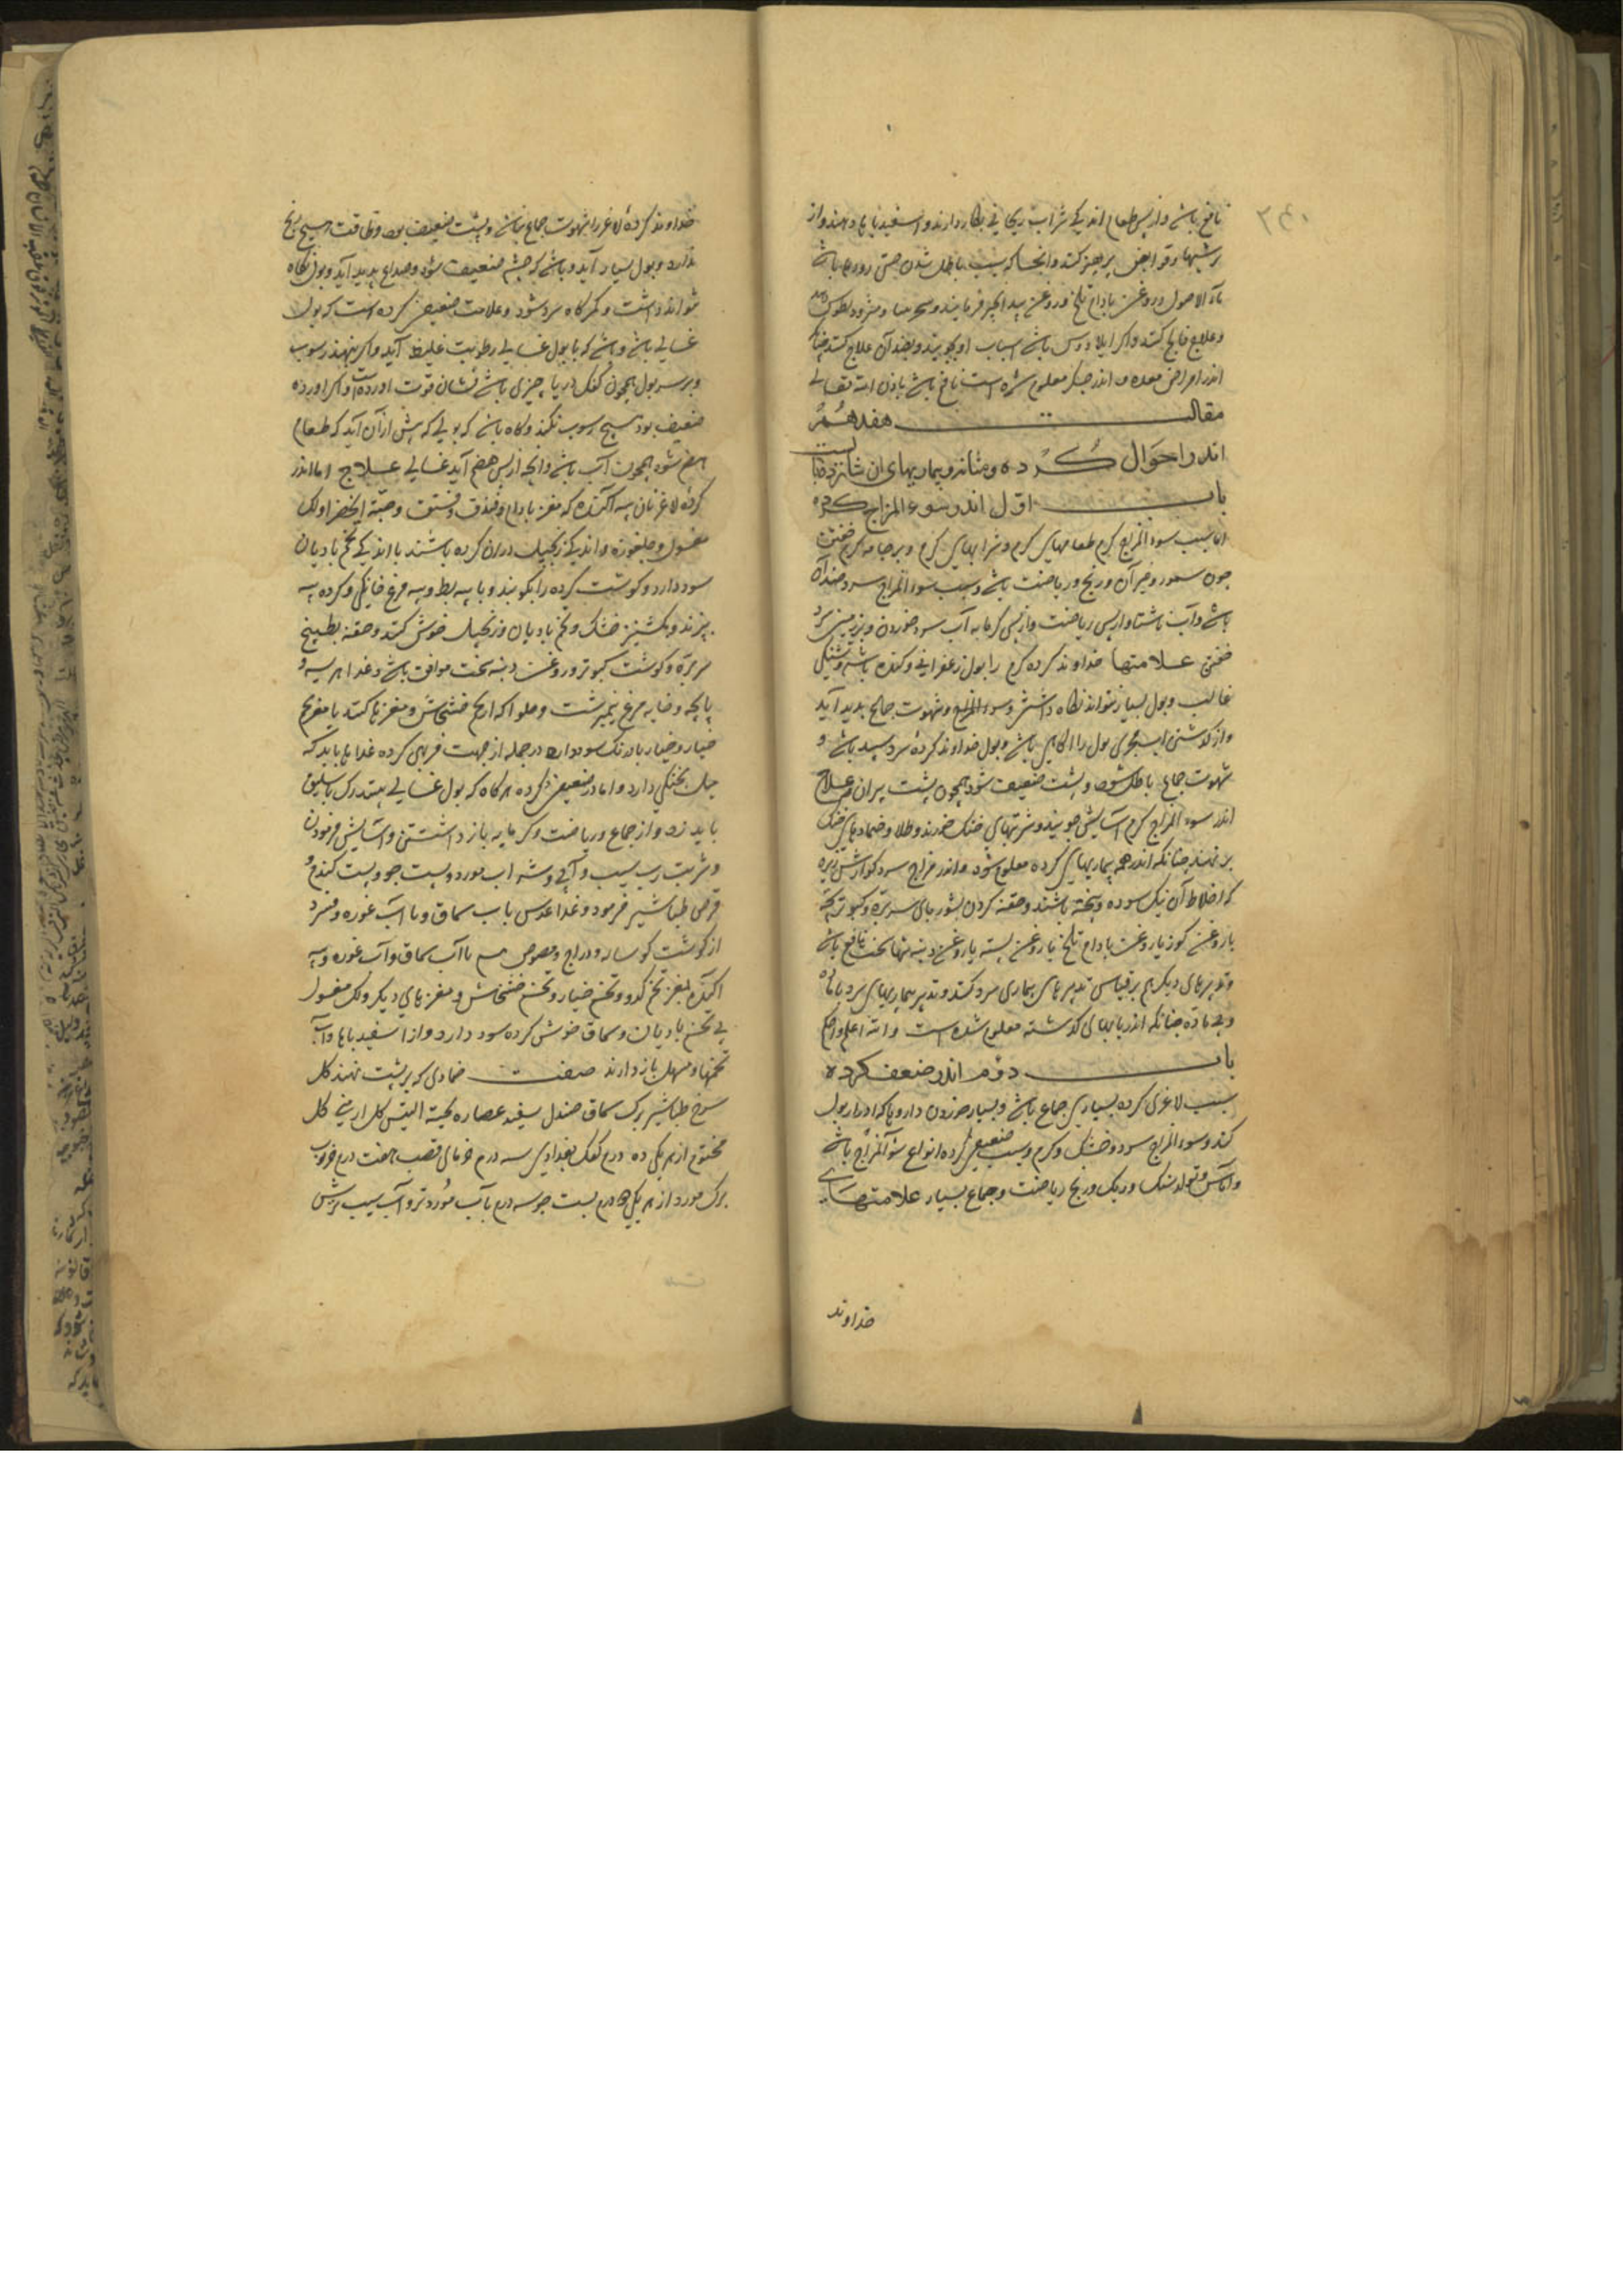 نافع باشد و از پس طعام اندکی شراب ریحانی بکار دارند و اسفیدباها دهند و از
ترشیها و قوابض پرهیز کنند و آنجا که سبب باطل شدن حس روده باشد
ماء الاصول و روغن بادام تلخ و روغن بیدانجیر فرمایند
و علاج فالج کنند و اگر ایلاوس باشد اسباب او بجویند و بضد آن علاج کنند چنانکه
اندر امراض معده و اندر جگر معلوم شده است نافع باشد باذن الله تعالی
مقالت هفدهم
اندر احوال کرده و مثانه و بیماریهای آن شانزده باب است
باب اول اندر سوء المزاج کرده
اما سبب سوء المزاج کرم طعامهای کرم و شرابهای کرم و بر جامه کرم خفتن
چون سمور و غیر آن و رنج و ریاضت باشد و سبب سوء المزاج سرد ضد آن
باشد و آب ناشتا و از پس ریاضت و از پس کرمابه آب سرد خوردن و بر زمین سرد
خفتن علامتها خداوند کرده کرم را بول زعفرانی و کنده باشد و تشنگی
غالب و بول بسیار نتواند نکاه داشتن و سوء المزاج و شهوت جماع پدید آید
و از کذشتن آب بمجری بول را آکاهی باشد و بول خداوند کرده سرد سپید باشد و
شهوت جماع باطل شود و پشت ضعیف شود همچون پشت پیران علاج
اندر سوء المزاج کرم آسایش جویند و شربتهای خنک خورند و طلا و ضمادهای خنک
بر نهند چنانکه اندر همه بیماریهای کرده معلوم شود و اندر مزاج سرد کوارش زیره
که اخلاط آن نیک سوده و پخته باشند و حقنه کردن بشوربای سر بره و کبوتر بچه
با روغن کوز یا روغن بادام تلخ یا روغن پسته یا روغن دنبه تنها سخت نافع باشد
و تدبیرهای دیکر هم بر قیاس تدبیرهای بیماری سرد کنند و تدبیر بیماریهای سرد با ماده
و بی ماده چنانکه اندر بابهای کذشته معلوم شده است و الله اعلم و احکم
باب دوم اندر ضعف کرده
سبب لاغری کرده بسیاری جماع باشد و بسیار خوردن داروها که ادرار بول
کند و سوء المزاج سرد و خشک و کرم و سبب ضعیفی کرده انواع سوء المزاج باشد
و آماس و تولد سنک و ریک و رنج ریاضت و جماع بسیار علامتهای
خداوند
خداوند کرده لاغر را شهوت جماع نباشد و پشت ضعیف بود و طاقت هیچ رنج
ندارد و بول بسیار آید و باشد که چشم ضعیف شود و صداع پدید آید و بول نکاه
نتواند داشت و کمرکاه سرد شود و علامت ضعیفی کرده است که بول
غسالی باشد و باشد که با بول غسالی رطوبت غلیظ آید و اگر بنهند رسوب
و بر سر بول همچون کفک دریا چیزی باشد نشان قوت اورده است و اگر اورده
ضعیف بود هیچ رسوب نکند و کاه باشد که بولی که پیش از آن آید که طعام
هضم شود همچون آب باشد و آنچه از پس هضم آید غسالی علاج اما اندر
کرده لاغر نان به آکنده که مغز بادام و فندق و فستق و حبة الخضرا و لک
مغسول و جلغوزه و اندکی زنجبیل در آن کرده باشند با اندکی تخم بادیان
سود دارد و کوشت کرده را بکوبند و با پیه بط و پیه مرغ خانکی و کرده به
بپزند و بکشنیز خشک و تخم بادیان و زنجبیل خوش کنند و حقنه بطبیخ
سر بره و کوشت کبوتر و روغن دنبه سخت موافق باشد و غذا هریسه و
پاچه و خایه مرغ نیم برشت و حلوا که از تخم خشخاش و مغزها کنند با مغز تخم
خیار و خیار بادرنک سود دارد در جمله از جهت فربهی کرده غذاها باید که
میل بخنکی دارد و اما در ضعیفی کرده هرکاه که بول غسالی بیند رک باسلیق
باید زد و از جماع و ریاضت و کرمابه باز داشتن و آسایش فرمودن
و شربت رب سیب و آبی و شراب مورد و پست جو و پست کندم و
قرص طباشیر فرمود و غذا عدس با آب سماق و با آب غوره و فسرد
از کوشت کوساله و دراج و مصوص هم با آب سماق و آب غوره و به
آکنده بمغز تخم کدو و تخم خیار و تخم خشخاش و مغزهای دیکر و لک مغسول
بی تخم بادیان و سماق خوش کرده سود دارد و از اسفیدباها و آب
تخمها و مسهل باز دارند صفت ضمادی که بر پشت نهند کل
سرخ طباشیر برک سماق صندل سفید عصاره لحیة التیس کل ارمنی کل
مختوم از هر یکی ده درم کعک بغدادی سه درم خرمای قصب هفت درم خروب
برک مورد از هر یکی درم پست جو سه درم بآب مورد تر و آب سیب ترش